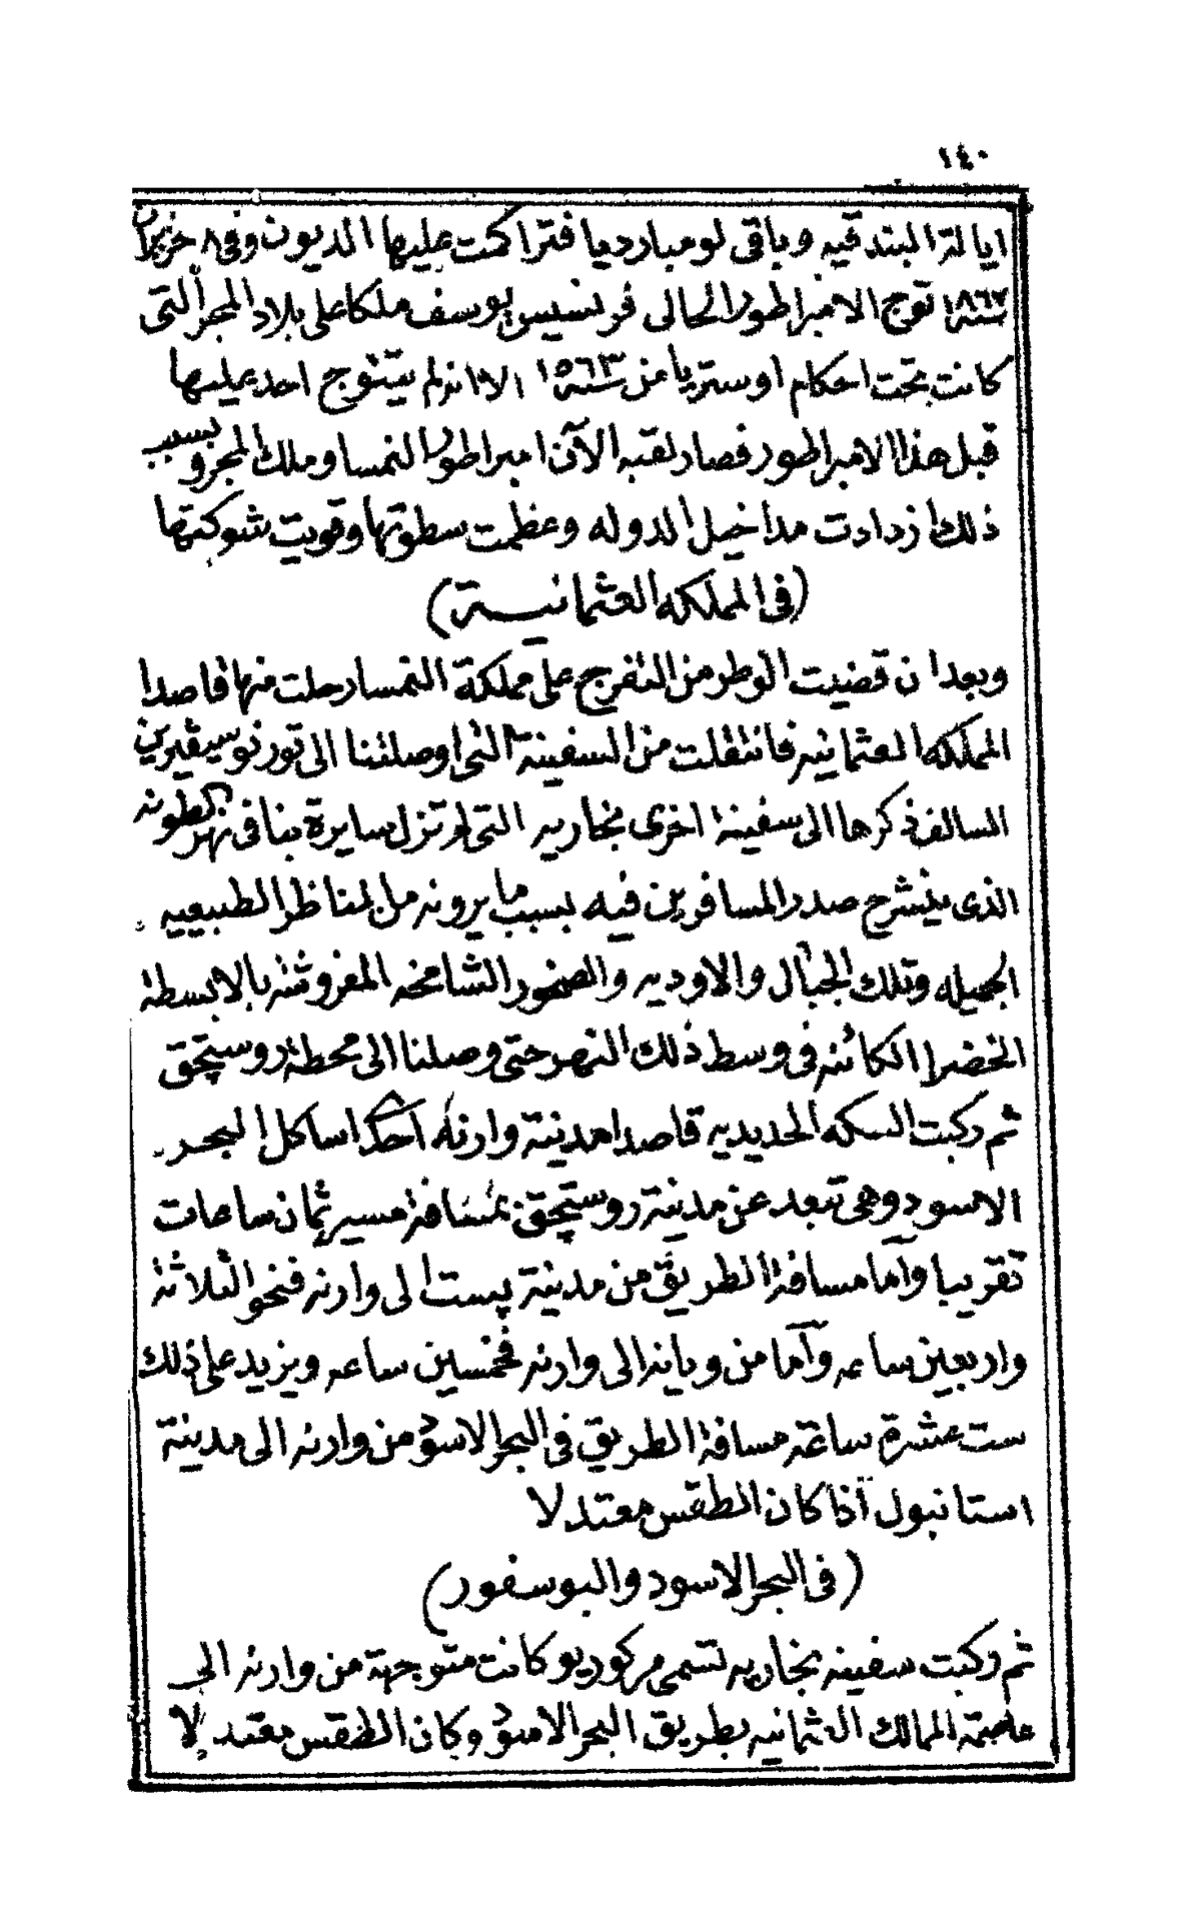 ١٤٠
ايالة البندقيه وباقى لومبارديا فتراكمت عليها الديون وفى ٨ حزيران
سنة ١٨٦٧ توج الامبراطور الحالى فرنسيس يوسف ملكا على بلاد المجر التى
كانت تحت احكام اوستريا من سنة ١٥٦٣ الا انه لم يتتوج احد عليها
قبل هذا الامبراطور فصار لقبه الآن امبراطور النمسا وملك المجر وبسبب
ذلك ازدادت مداخيل الدوله وعظمت سطوتها وقويت شوكتها
(فى المملكه العثمانيــة)
وبعد ان قضيت الوطر من التفرج على مملكة النمسا رحلت منها قاصدا
المملكه العثمانيه فانتقلت من السفينة التى اوصلتنا الى تورنوسيڤيرين
السالف ذكرها الى سفينة اخرى بخاريه التى لم تزل سايرة بنا فى نهر الطونه
الذى ينشرح صدر المسافرين فيه بسبب ما يرونه من المناظر الطبيعيه
الجميله وتلك الجبال والاوديه والصخور الشامخه المفروشة بالابسطة
الخضرا الكائنه فى وسط ذلك النهر حتى وصلنا الى محطة روستچق
ثم ركبت السكه الحديديه قاصدا مدينة وارنه احد اساكل البحر
الاسود وهى تبعد عن مدينة روستچق بمسافة مسير ثمان ساعات
تقريبا وأما مسافة الطريق من مدينة پست الى وارنه فنحو الثلاثة
واربعين ساعه وأما من ويانه الى وارنه فخمسين ساعه ويزيد على ذلك
ست عشرة ساعة مسافة الطريق فى البحر الاسود من وارنه الى مدينة
استانبول اذا كان الطقس معتدلا
(فى البحر الاسود والبوسفور)
ثم ركبت سفينه بخاريه تسمى مركوريو كانت متوجهة من وارنه الى
عاصمة الممالك العثمانيه بطريق البحر الاسود وكان الطقس معتدلا